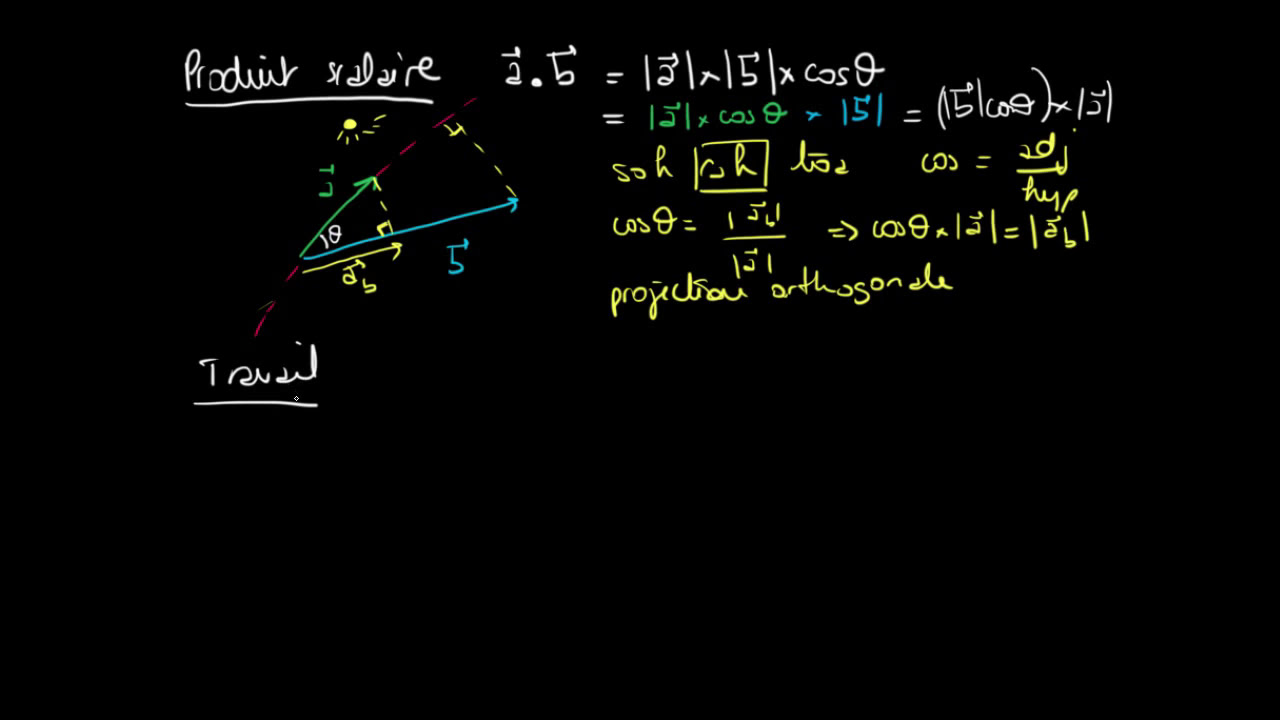 Produit scalaire a⃗ . b⃗ = |a⃗| × |b⃗| × cosθ
= |a⃗| × cosθ × |b⃗| = (|b⃗| cosθ) × |a⃗|
soh cah toa cos = adj / hyp
cosθ = |a⃗_b| / |a⃗| ⇒ cosθ × |a⃗| = |a⃗_b|
projection orthogonale
a⃗
θ
a⃗_b
b⃗
Travail